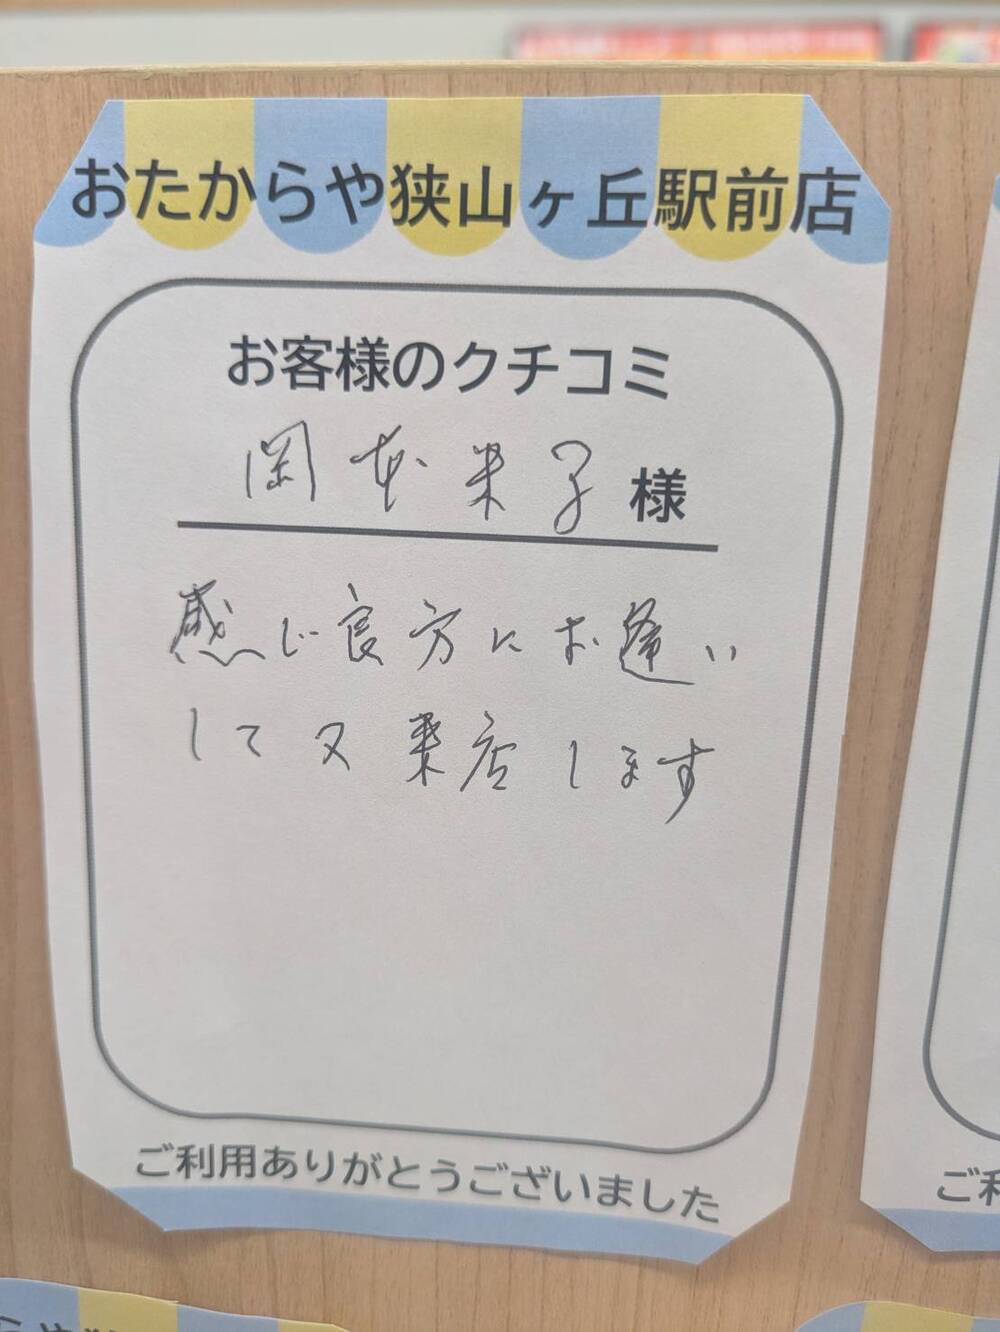 おたからや狭山ヶ丘駅前店
お客様のクチコミ
岡本米子 様
感じ良方にお逢い
して又来店します
ご利用ありがとうございました
ご利